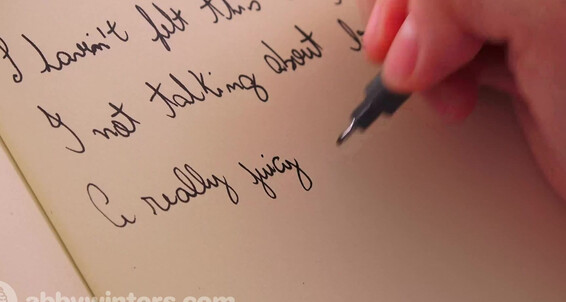 I haven't felt this
I not talking about
a really juicy
abbywinters.com